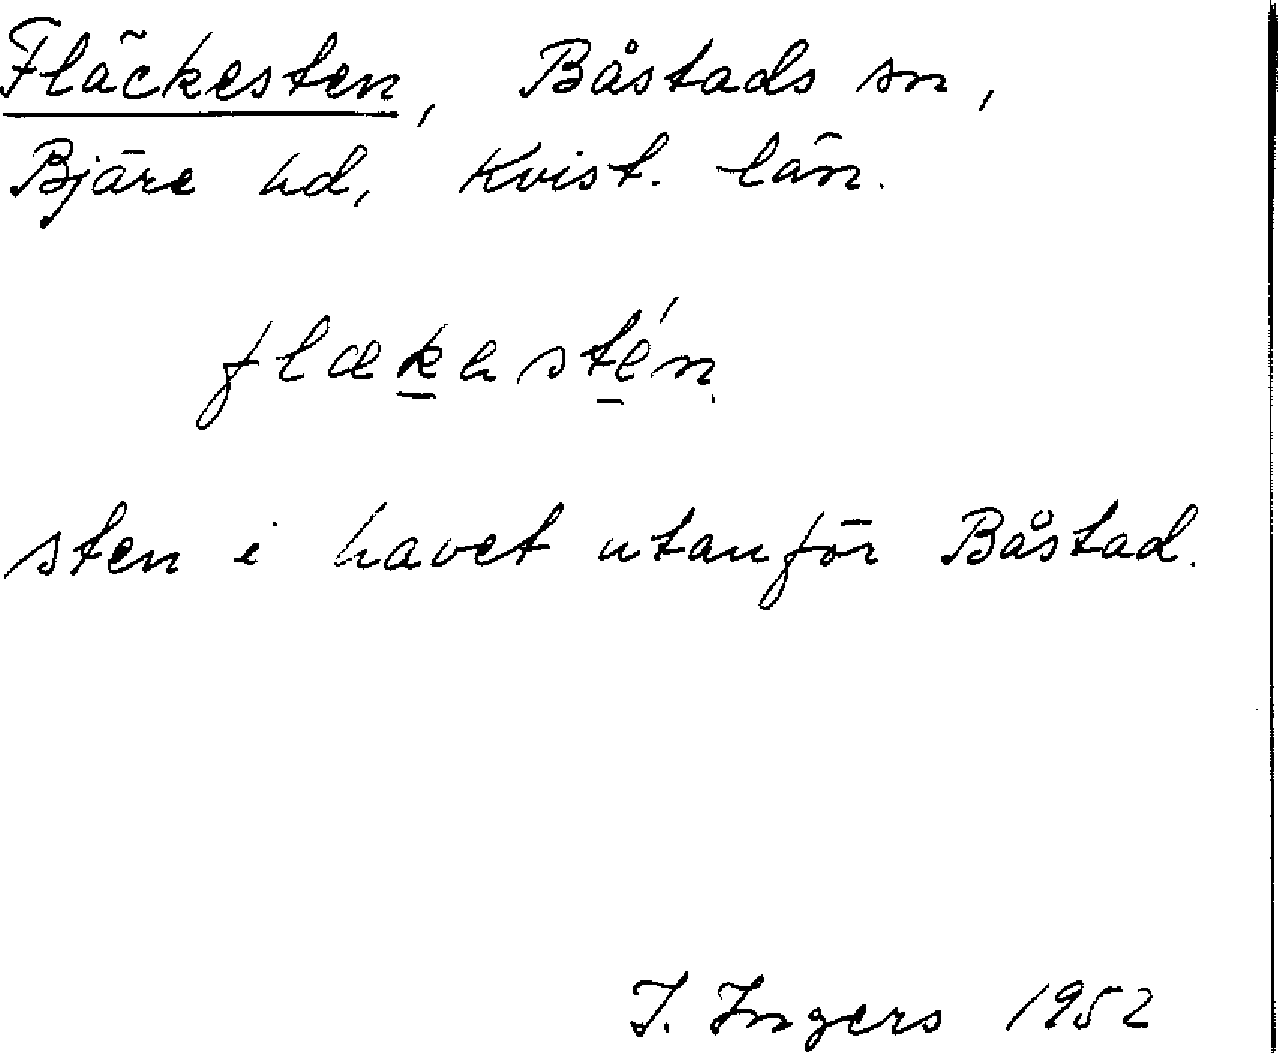 Fläckesten, Båstads sn,
Bjäre hd, Krist. län.
flækastén
sten i havet utanför Båstad.
I. Ingers 1952